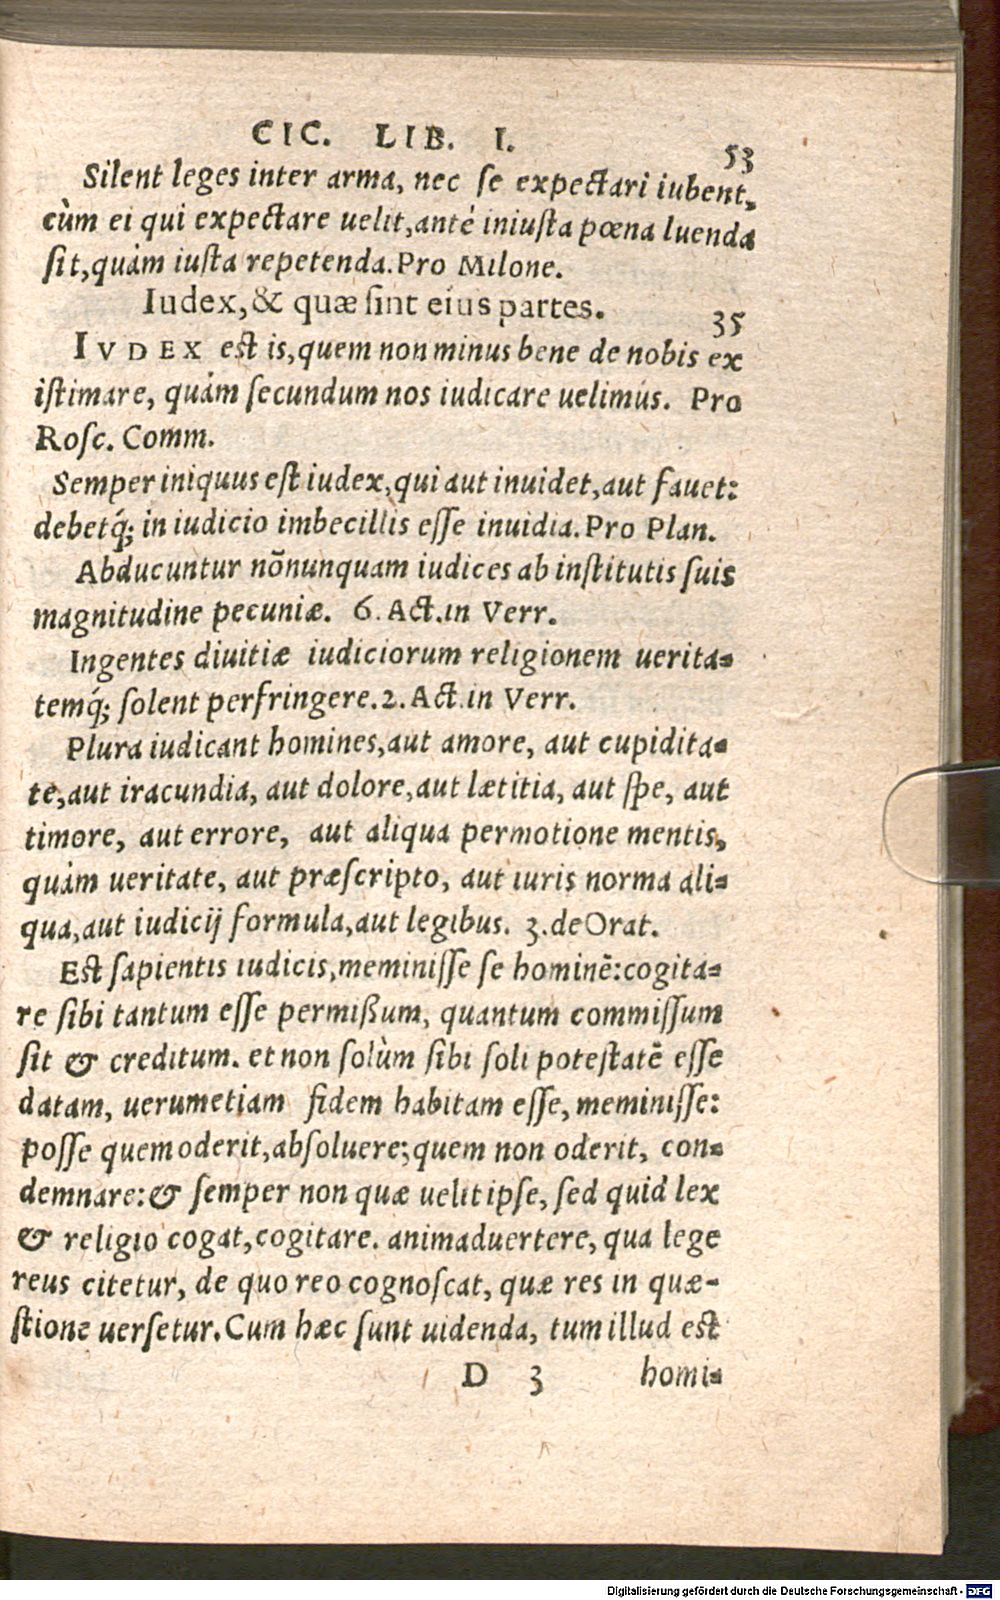 CIC. LIB. I. 53
Silent leges inter arma, nec se expectari iubent,
cùm ei qui expectare uelit, antè iniusta pœna luenda
sit, quàm iusta repetenda. Pro Milone.
Iudex, & quæ sint eius partes. 35
IVDEX est is, quem non minus bene de nobis ex
istimare, quàm secundum nos iudicare uelimus. Pro
Rosc. Comm.
Semper iniquus est iudex, qui aut inuidet, aut fauet:
debetq́; in iudicio imbecillis esse inuidia. Pro Plan.
Abducuntur nõnunquam iudices ab institutis suis
magnitudine pecuniæ. 6. Act. in Verr.
Ingentes diuitiæ iudiciorum religionem uerita-
temq́; solent perfringere. 2. Act. in Verr.
Plura iudicant homines, aut amore, aut cupidita-
te, aut iracundia, aut dolore, aut lætitia, aut spe, aut
timore, aut errore, aut aliqua permotione mentis,
quàm ueritate, aut præscripto, aut iuris norma ali-
qua, aut iudicij formula, aut legibus. 3. de Orat.
Est sapientis iudicis, meminisse se hominẽ: cogita-
re sibi tantum esse permißum, quantum commissum
sit & creditum. et non solùm sibi soli potestatẽ esse
datam, uerumetiam fidem habitam esse, meminisse:
posse quem oderit, absoluere; quem non oderit, con-
demnare: & semper non quæ uelit ipse, sed quid lex
& religio cogat, cogitare. animaduertere, qua lege
reus citetur, de quo reo cognoscat, quæ res in quæ-
stione uersetur. Cum hæc sunt uidenda, tum illud est
D 3 homi-
Digitalisierung gefördert durch die Deutsche Forschungsgemeinschaft - DFG